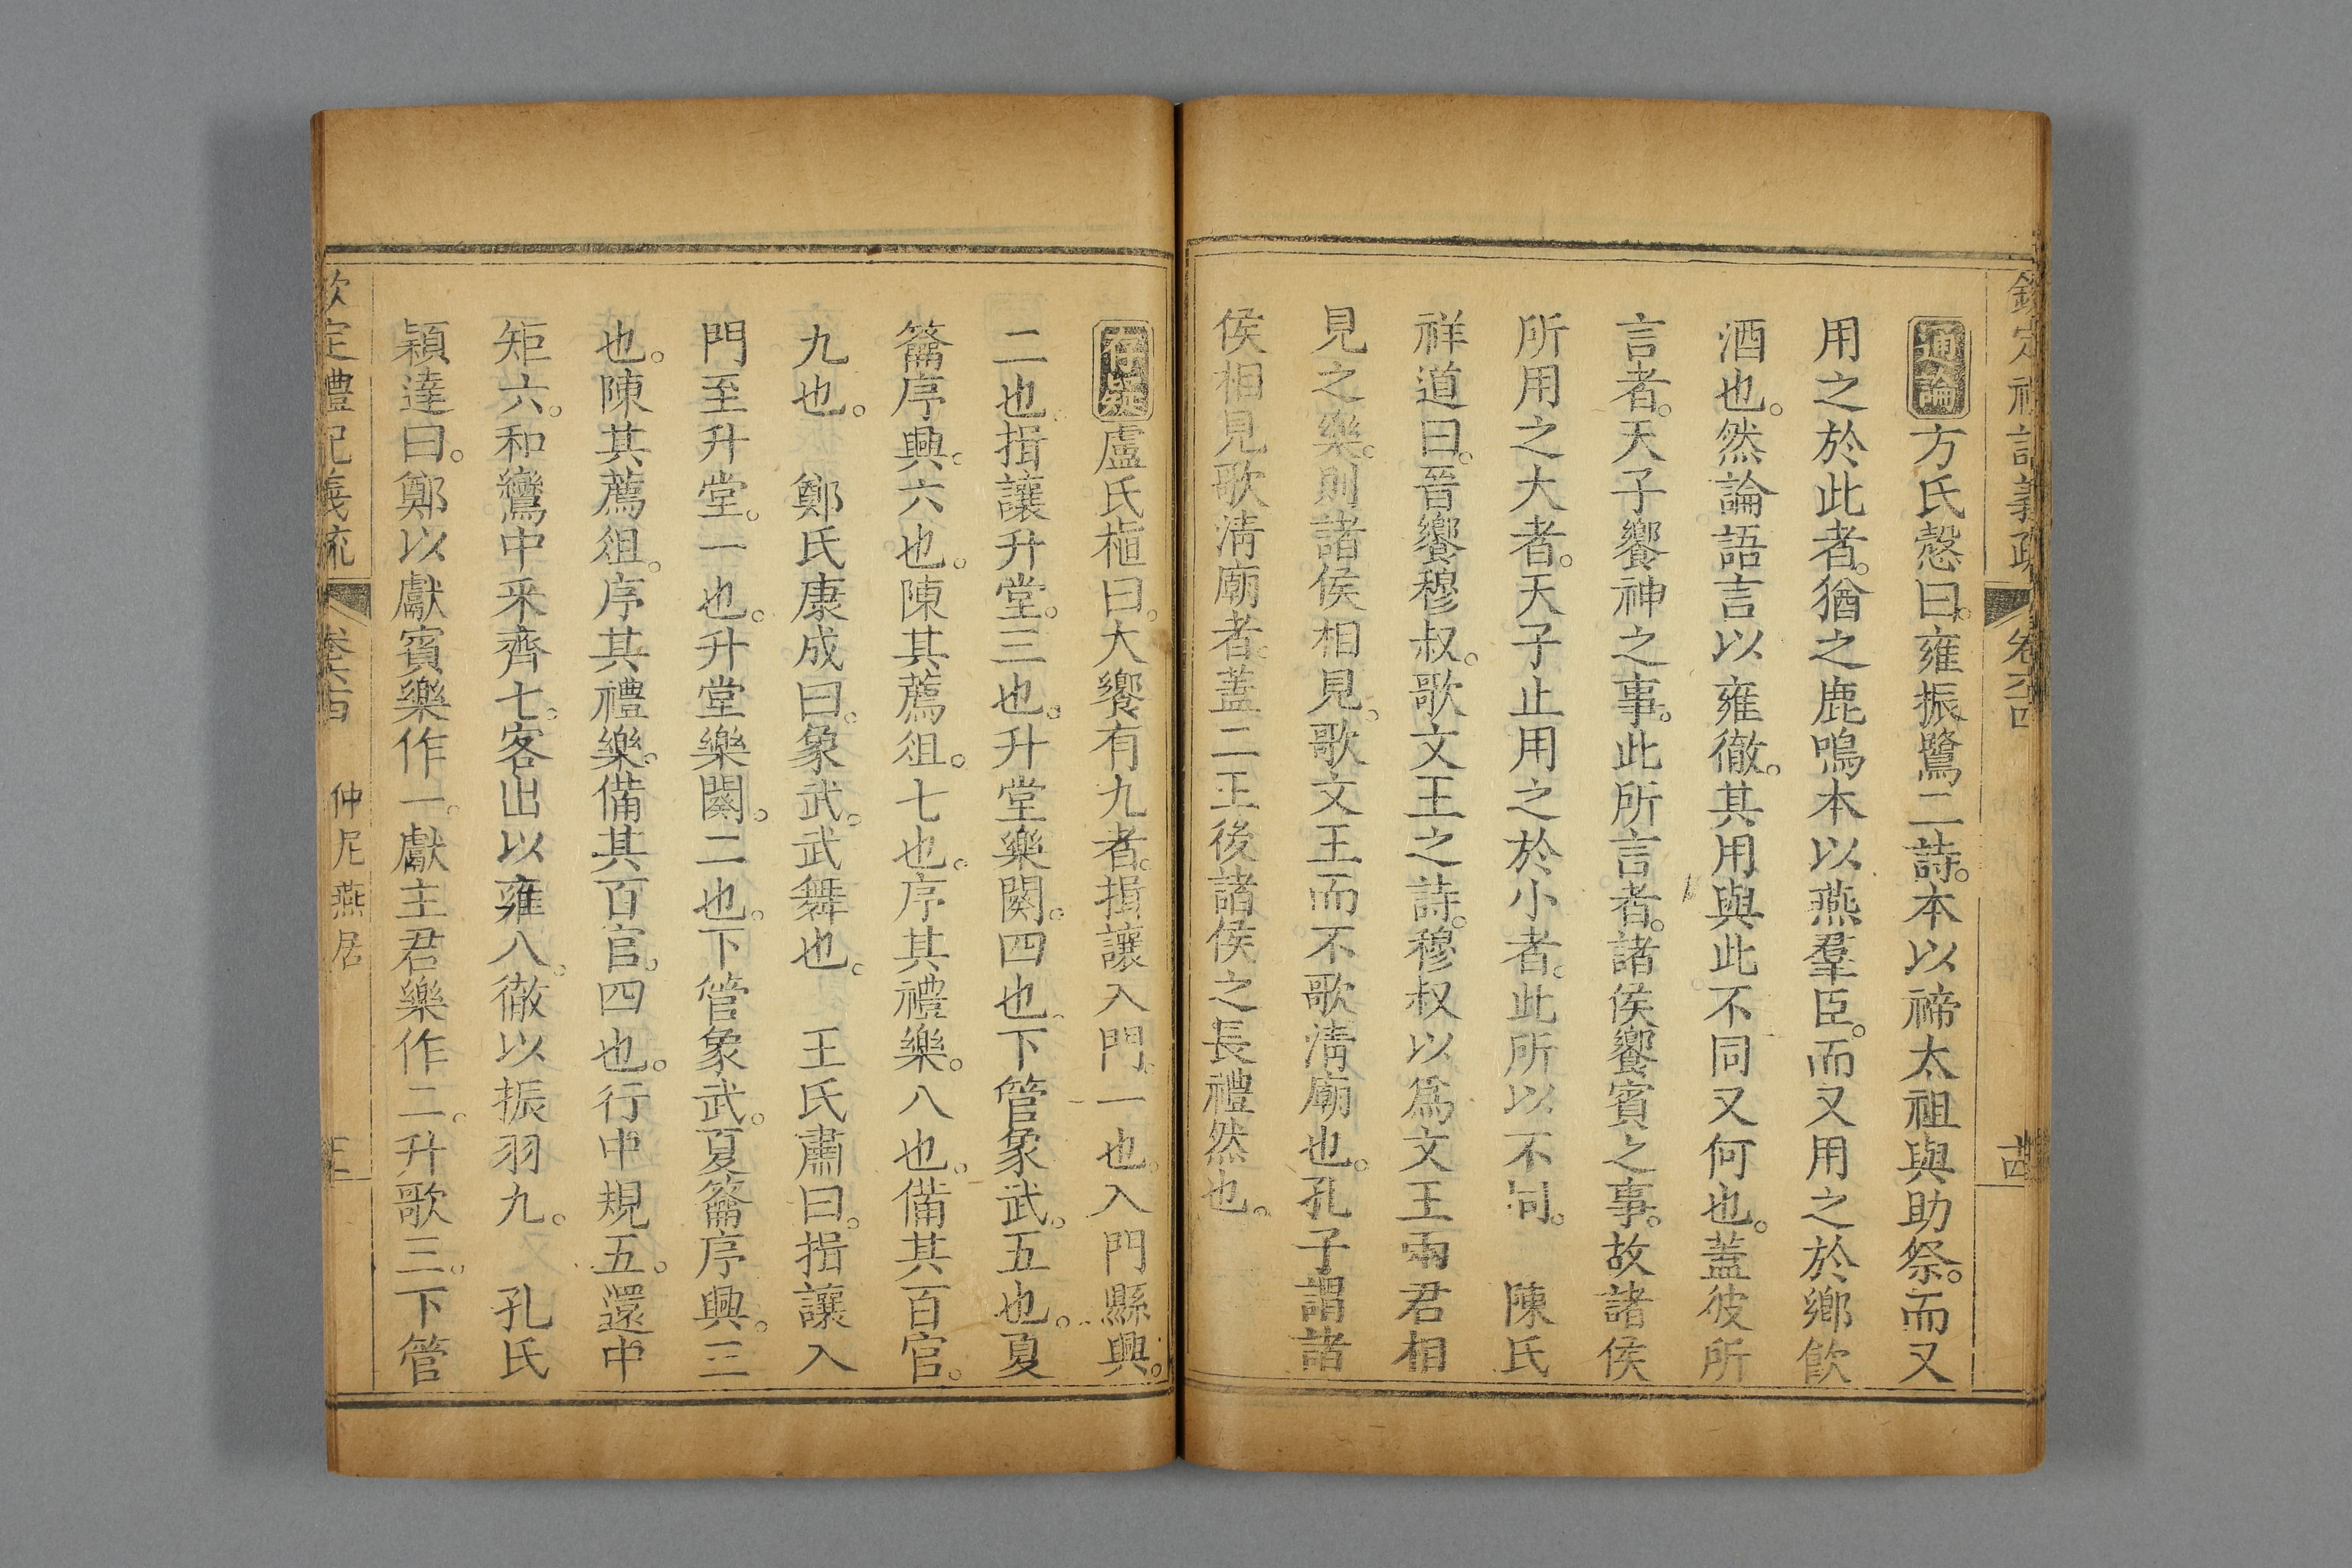 欽定禮記義疏 卷六十四 十四
通論方氏慤曰。雍振鷺二詩。本以禘太祖與助祭。而又
用之於此者。猶之鹿鳴本以燕羣臣。而又用之於鄉飲
酒也。然論語言以雍徹。其用與此不同又何也。蓋彼所
言者。天子饗神之事。此所言者。諸侯饗賓之事。故諸侯
所用之大者。天子止用之於小者。此所以不同。 陳氏
祥道曰。晉饗穆叔。歌文王之詩。穆叔以為文王兩君相
見之樂。則諸侯相見。歌文王而不歌淸廟也。孔子謂諸
侯相見歌淸廟者。蓋二王後諸侯之長禮然也。
存疑盧氏植曰。大饗有九者。揖讓入門。一也。入門縣興。
二也。揖讓升堂。三也。升堂樂闋。四也。下管象武。五也。夏
籥序興。六也。陳其薦俎。七也。序其禮樂。八也。備其百官。
九也。 鄭氏康成曰。象武。武舞也。 王氏肅曰。揖讓入
門至升堂。一也。升堂樂闋。二也。下管象武。夏籥序興。三
也。陳其薦俎。序其禮樂。備其百官。四也。行中規五。還中
矩六。和鸞中采齊七。客出以雍八。徹以振羽九。 孔氏
穎達曰。鄭以獻賓樂作一。獻主君樂作二。升歌三。下管
欽定禮記義疏 仲尼燕居